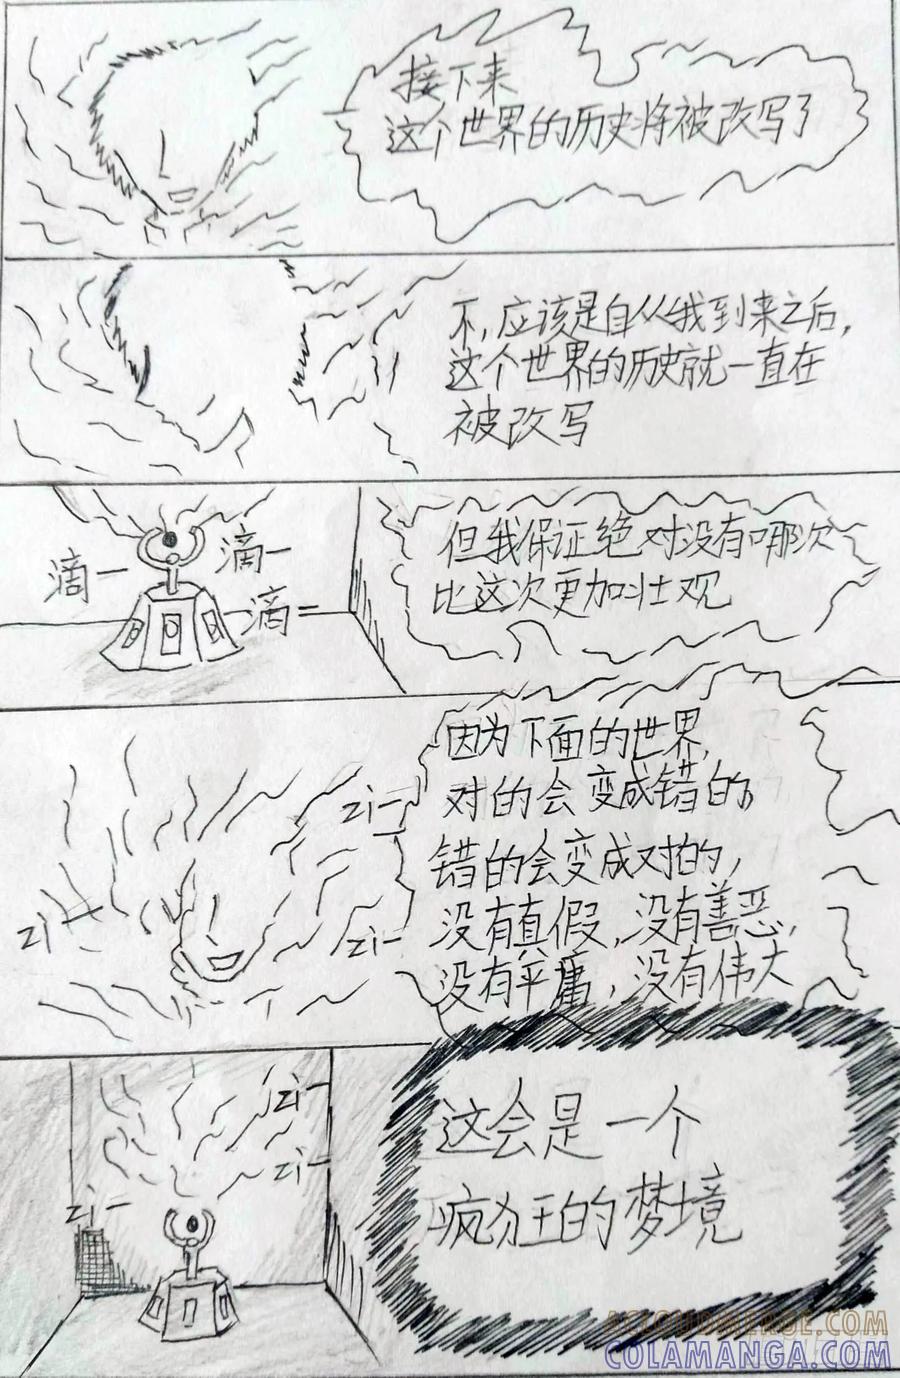 接下来
这个世界的历史将被改写了
不，应该是自从我到来之后，
这个世界的历史就一直在
被改写
滴一
滴一
滴=
但我保证绝对没有哪次
比这次更加壮观
zi-
zi-
zi-
因为下面的世界，
对的会变成错的。
错的会变成对的，
没有真假，没有善恶，
没有平庸，没有伟大
zi-
zi-
zi-
这会是一个
疯狂的梦境
ACLOUDMERGE.COM
COLAMANGA.COM